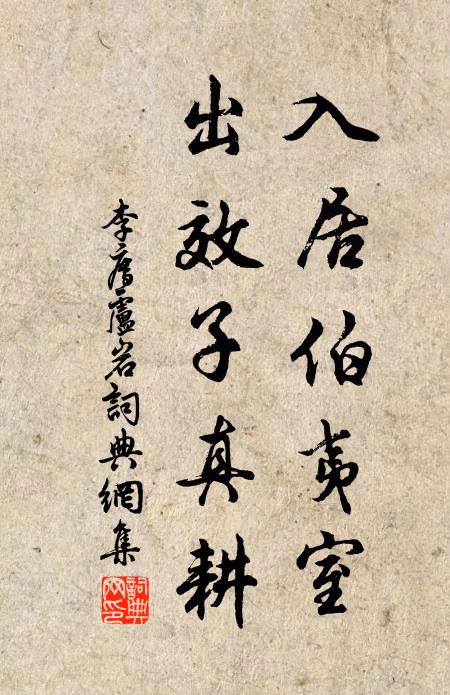 入居伯夷室
出效子真耕
李廌廬岩詞典網集